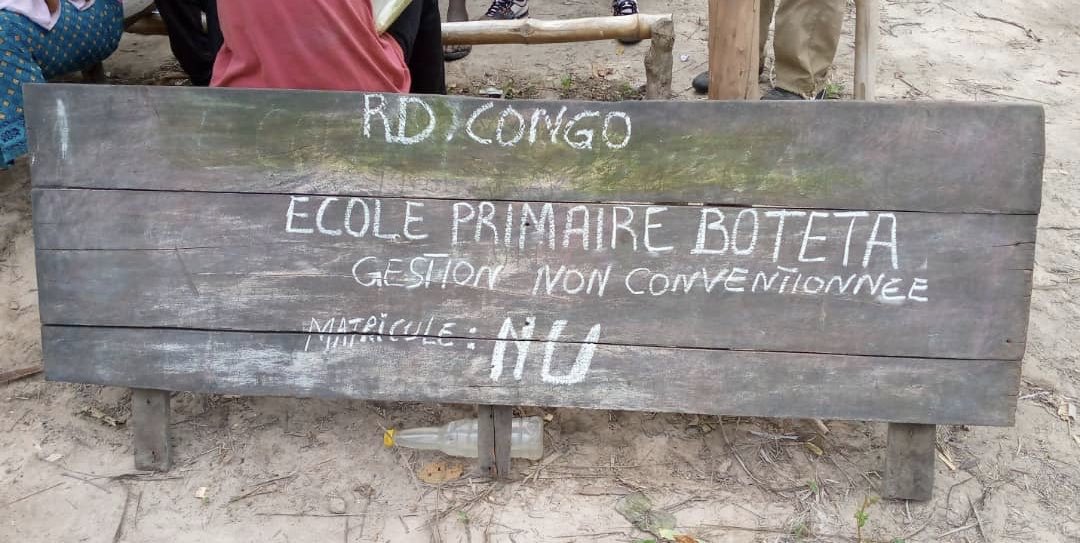 RD.CONGO
ECOLE PRIMAIRE BOTETA
GESTION NON CONVENTIONNEE
MATRICULE : NU